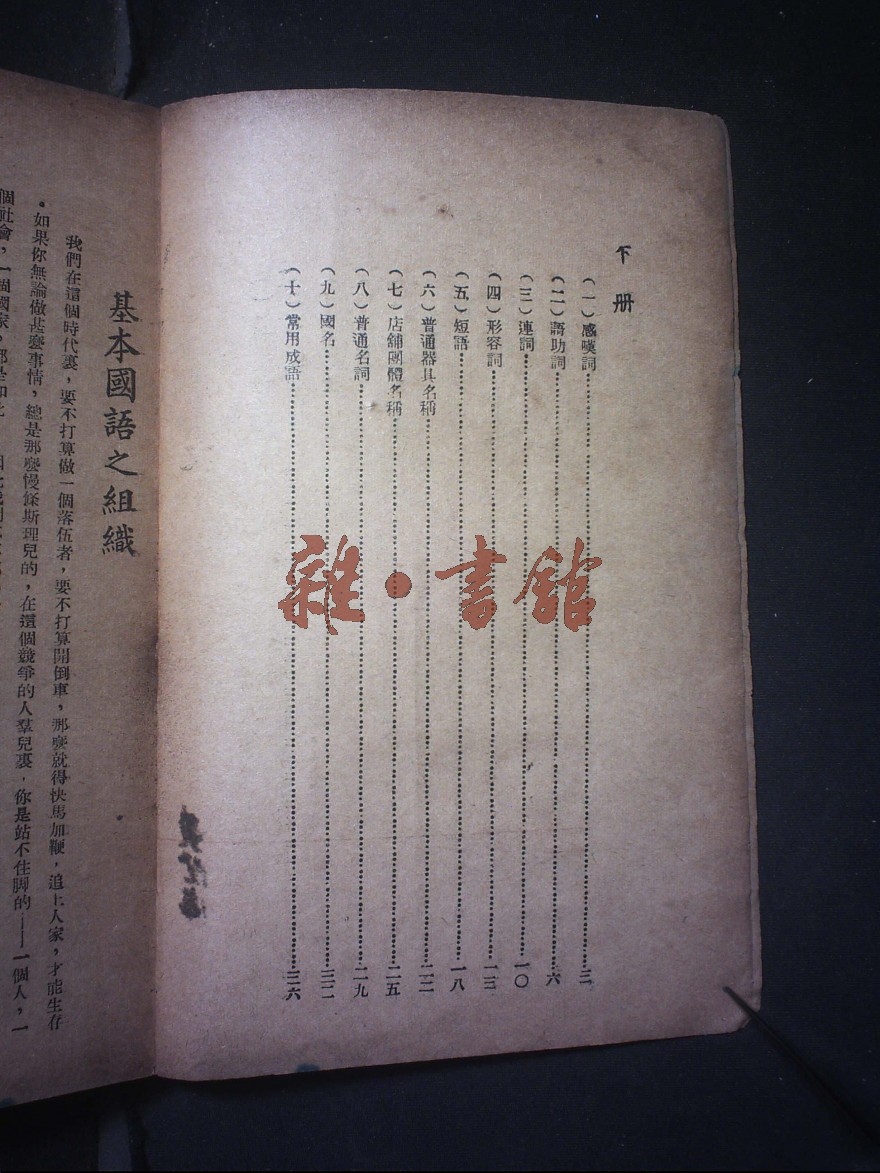 下册
(一)感嘆詞……三
(二)語助詞……六
(三)連詞……一〇
(四)形容詞……一三
(五)短語……一八
(六)普通器具名稱……二二
(七)店舖團體名稱……二五
(八)普通名詞……二九
(九)國名……三二
(十)常用成語……三六
基本國語之組織
我們在這個時代裏,要不打算做一個落伍者,要不打算開倒車,那麼就得快馬加鞭,追上人家,才能生存
。如果你無論做甚麼事情,總是那麼慢條斯理兒的,在這個競爭的人羣兒裏,你是站不住脚的——一個人,一
個社會,一個國家,都是如此
雜·書館